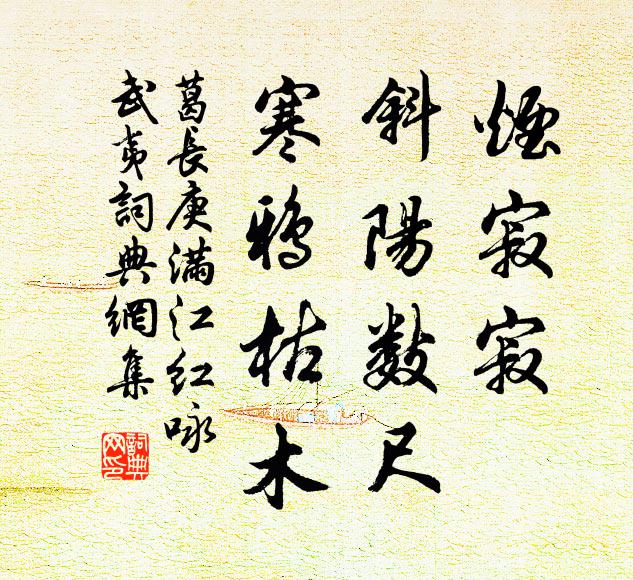 煙寂寂
斜陽數尺
寒鴉枯木
葛長庚滿江紅咏
武夷詞典網集
詞典网印